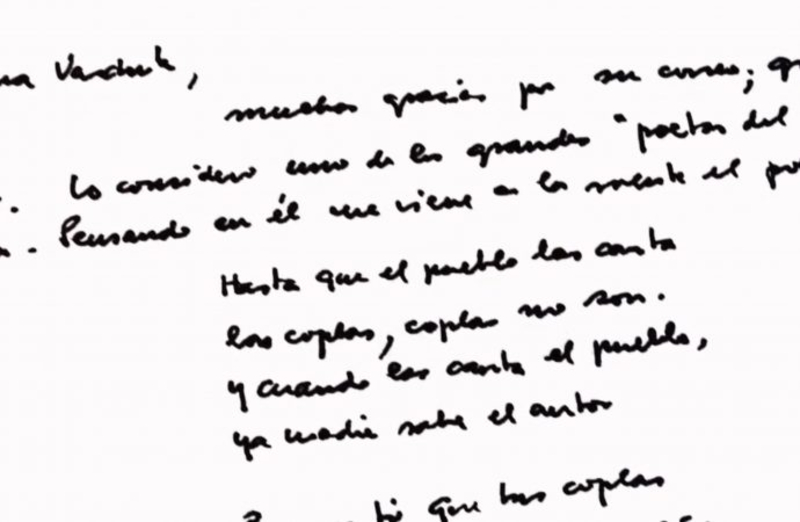 muchas gracias por su correo;
Lo considero uno de los grandes "poetas del
Pensando en él me viene a la mente el
Hasta que el pueblo las canta
las coplas, coplas no son.
y cuando las canta el pueblo,
ya nadie sabe el autor
que tus coplas